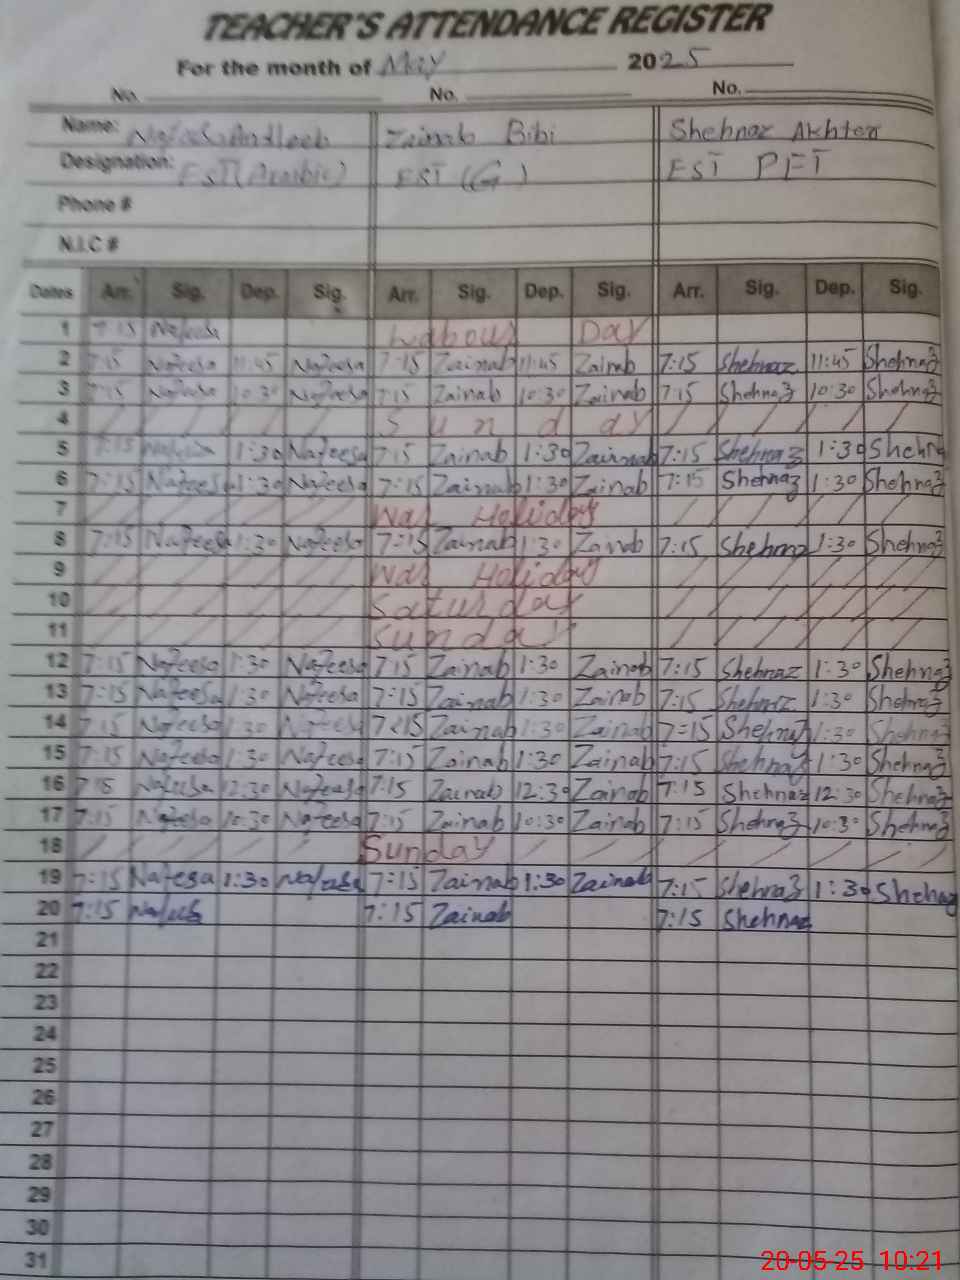 TEACHER'S ATTENDANCE REGISTER
For the month of May 2025
No. No. No.
Name: Nafeesa Andleeb Zainab Bibi Shehnaz Akhter
Designation: EST (Arabic) EST (G) EST PET
Phone #
N.I.C #
Dates Arr. Sig. Dep. Sig. Arr. Sig. Dep. Sig. Arr. Sig. Dep. Sig.
1 7:15 Nafeesa Labour Day
2 7:15 Nafeesa 11:45 Nafeesa 7:15 Zainab 11:45 Zainab 7:15 Shehnaz 11:45 Shehnaz
3 7:15 Nafeesa 10:30 Nafeesa 7:15 Zainab 10:30 Zainab 7:15 Shehnaz 10:30 Shehnaz
4 Sunday
5 7:15 Nafeesa 1:30 Nafeesa 7:15 Zainab 1:30 Zainab 7:15 Shehnaz 1:30 Shehn
6 7:15 Nafeesa 1:30 Nafeesa 7:15 Zainab 1:30 Zainab 7:15 Shehnaz 1:30 Shehnaz
7 War Holiday
8 7:15 Nafeesa 1:30 Nafeesa 7:15 Zainab 1:30 Zainab 7:15 Shehnaz 1:30 Shehnaz
9 War Holiday
10 Saturday
11 Sunday
12 7:15 Nafeesa 1:30 Nafeesa 7:15 Zainab 1:30 Zainab 7:15 Shehnaz 1:30 Shehnaz
13 7:15 Nafeesa 1:30 Nafeesa 7:15 Zainab 1:30 Zainab 7:15 Shehnaz 1:30 Shehnaz
14 7:15 Nafeesa 1:30 Nafeesa 7:15 Zainab 1:30 Zainab 7:15 Shehnaz 1:30 Shehnaz
15 7:15 Nafeesa 1:30 Nafeesa 7:15 Zainab 1:30 Zainab 7:15 Shehnaz 1:30 Shehnaz
16 7:15 Nafeesa 12:30 Nafeesa 7:15 Zainab 12:30 Zainab 7:15 Shehnaz 12:30 Shehnaz
17 7:15 Nafeesa 10:30 Nafeesa 7:15 Zainab 10:30 Zainab 7:15 Shehnaz 10:30 Shehnaz
18 Sunday
19 7:15 Nafeesa 1:30 Nafeesa 7:15 Zainab 1:30 Zainab 7:15 Shehnaz 1:30 Shehnaz
20 7:15 7:15 Zainab 7:15 Shehnaz
21
22
23
24
25
26
27
28
29
30
31
20-05-25 10:21